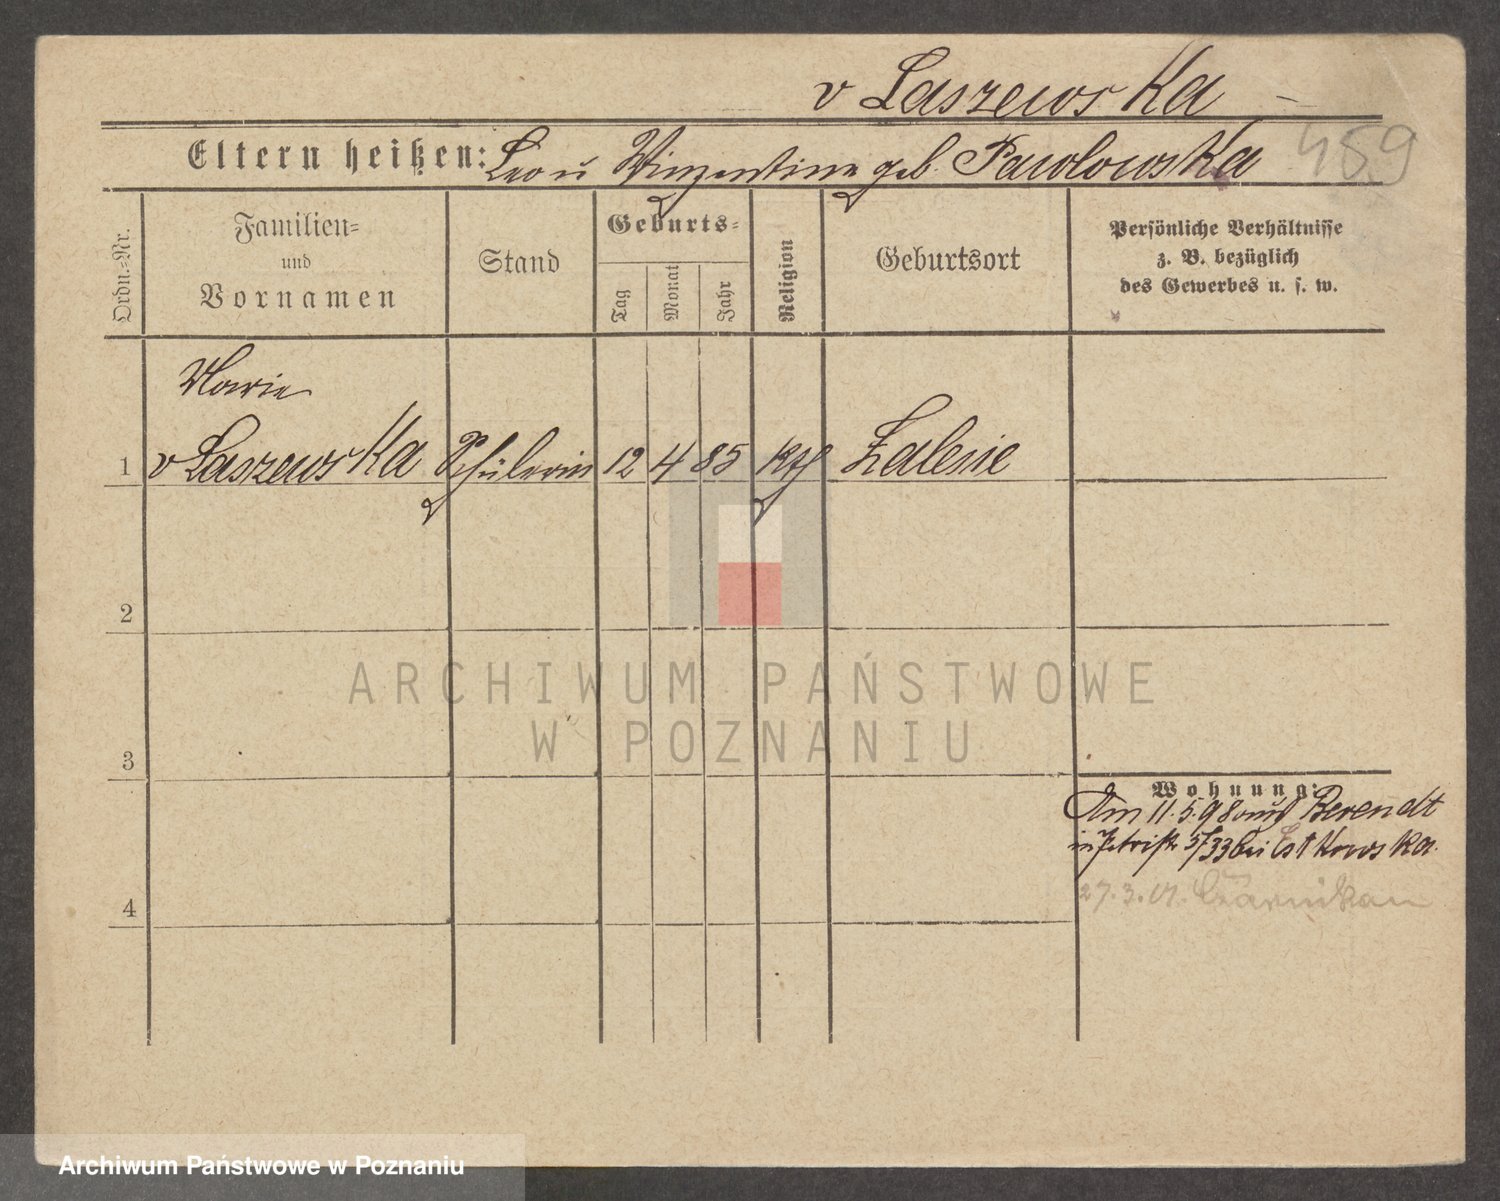 v Laszewska
459
Eltern heißen: Leo u Winzentine geb. Pawlowska
Ordn.=Nr.
Familien=
und
Vornamen
Stand
Geburts=
Tag
Monat
Jahr
Religion
Geburtsort
Persönliche Verhältnisse
z. B. bezüglich
des Gewerbes u. s. w.
Marie
1 v Laszewska Schülerin 12 4 85 kth Zalesie
2
3
4
Wohnung:
Am 11.5.98 aus Berendt
in Petristr 5/33 bei Estkowska.
27.3.01. Czarnikau
ARCHIWUM PAŃSTWOWE
W POZNANIU
Archiwum Państwowe w Poznaniu